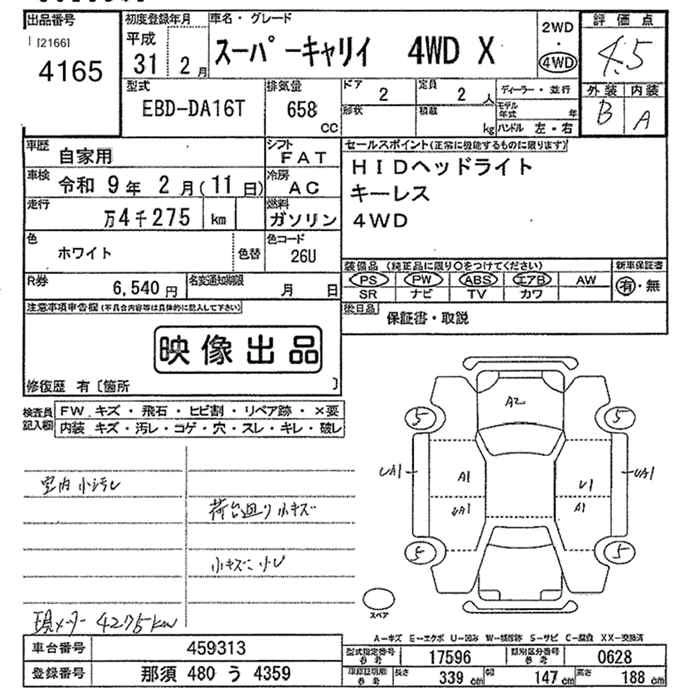 出品番号
[21661
4165
初度登録年月
平成
31 2月
車名・グレード
スーパーキャリイ 4WD X
2WD
・
4WD
評価点
4.5
外装 内装
B A
型式
EBD-DA16T
排気量
658 cc
ドア
2
定員
2 人
形状
積載
kg
ディーラー・並行
モデル年式 年
ハンドル 左・右
車歴
自家用
シフト
FAT
車検
令和 9年 2月(11日)
冷房
AC
走行
万4千275 km
燃料
ガソリン
色
ホワイト
色替
色コード
26U
R券
6,540円
名変通知期限
月 日
セールスポイント(正常に機能するものに限ります)
HIDヘッドライト
キーレス
4WD
装備品 (純正品に限り〇をつけてください)
PS PW ABS エアB AW
SR ナビ TV カワ
新車保証書
有・無
後日品
保証書・取説
注意事項申告欄(不具合内容等は具体的に記入して下さい)
映像出品
修復歴 有〔箇所 〕
検査員記入欄
FW キズ・飛石・ヒビ割・リペア跡・×要
内装 キズ・汚レ・コゲ・穴・スレ・キレ・破レ
室内小汚レ
荷台廻り小キズ
小キズ小凹
現メーター 4275km
A2
5 5
UA1 A1 U1 UA1
UA1 A1
5 5
スペア
A-キズ E-エクボ U-凹み W-補修跡 S-サビ C-腐食 XX-交換済
車台番号 459313
登録番号 那須 480 う 4359
型式指定番号 参考 17596
類別区分番号 参考 0628
車検証期間 参考
長さ 339 cm
幅 147 cm
高さ 188 cm